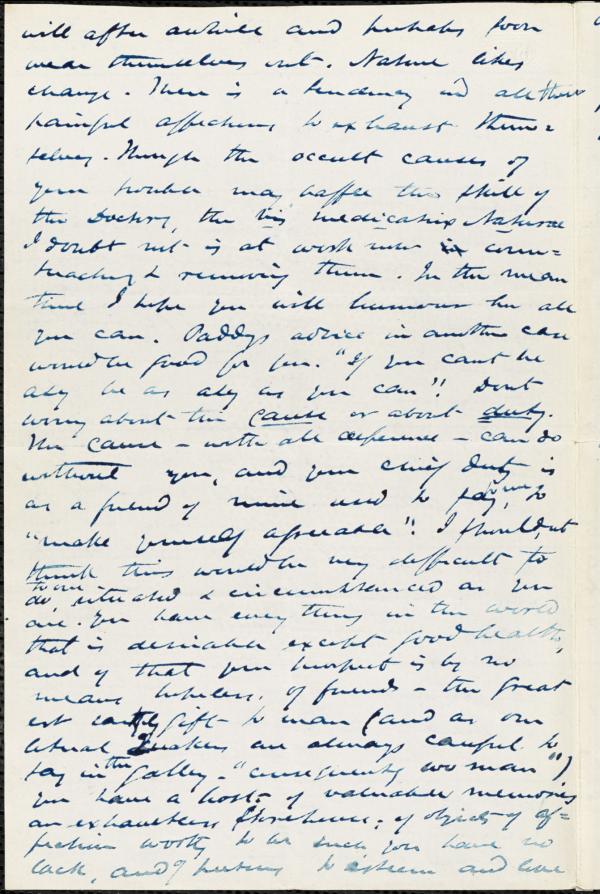 will after awhile and perhaps soon
wear themselves out. Nature likes
change. There is a tendency in all these
painful affections to exhaust them=
selves. Though the occult causes of
your trouble may baffle the skill of
the Doctors, the vis medicatrix Naturae
I doubt not is at work now in coun=
teracting & removing them. In the mean
time I hope you will humour her all
you can. Paddy's advice in another case
would be good for you. "If you cant be
aisy be as aisy as you can"! Dont
worry about the cause or about duty.
The cause - with all deference - can do
without you, and your chief duty is
as a friend of mine used to say, to
"make yourself agreeable"! I should not
think this would be very difficult to
do, situated & circumstanced as you
are. You have every thing in the world
that is desirable except good health,
and of that your prospect is by no
means hopeless. Of friends - the great
est earthly gift to man (and as our
liberal Quakers are always careful to
say in the Galley - "consequently woman")
you have a host: of valuable memories
an exhaustless storehouse; of objects of af=
fection worthy to be such you have no
lack, and of persons to esteem and love